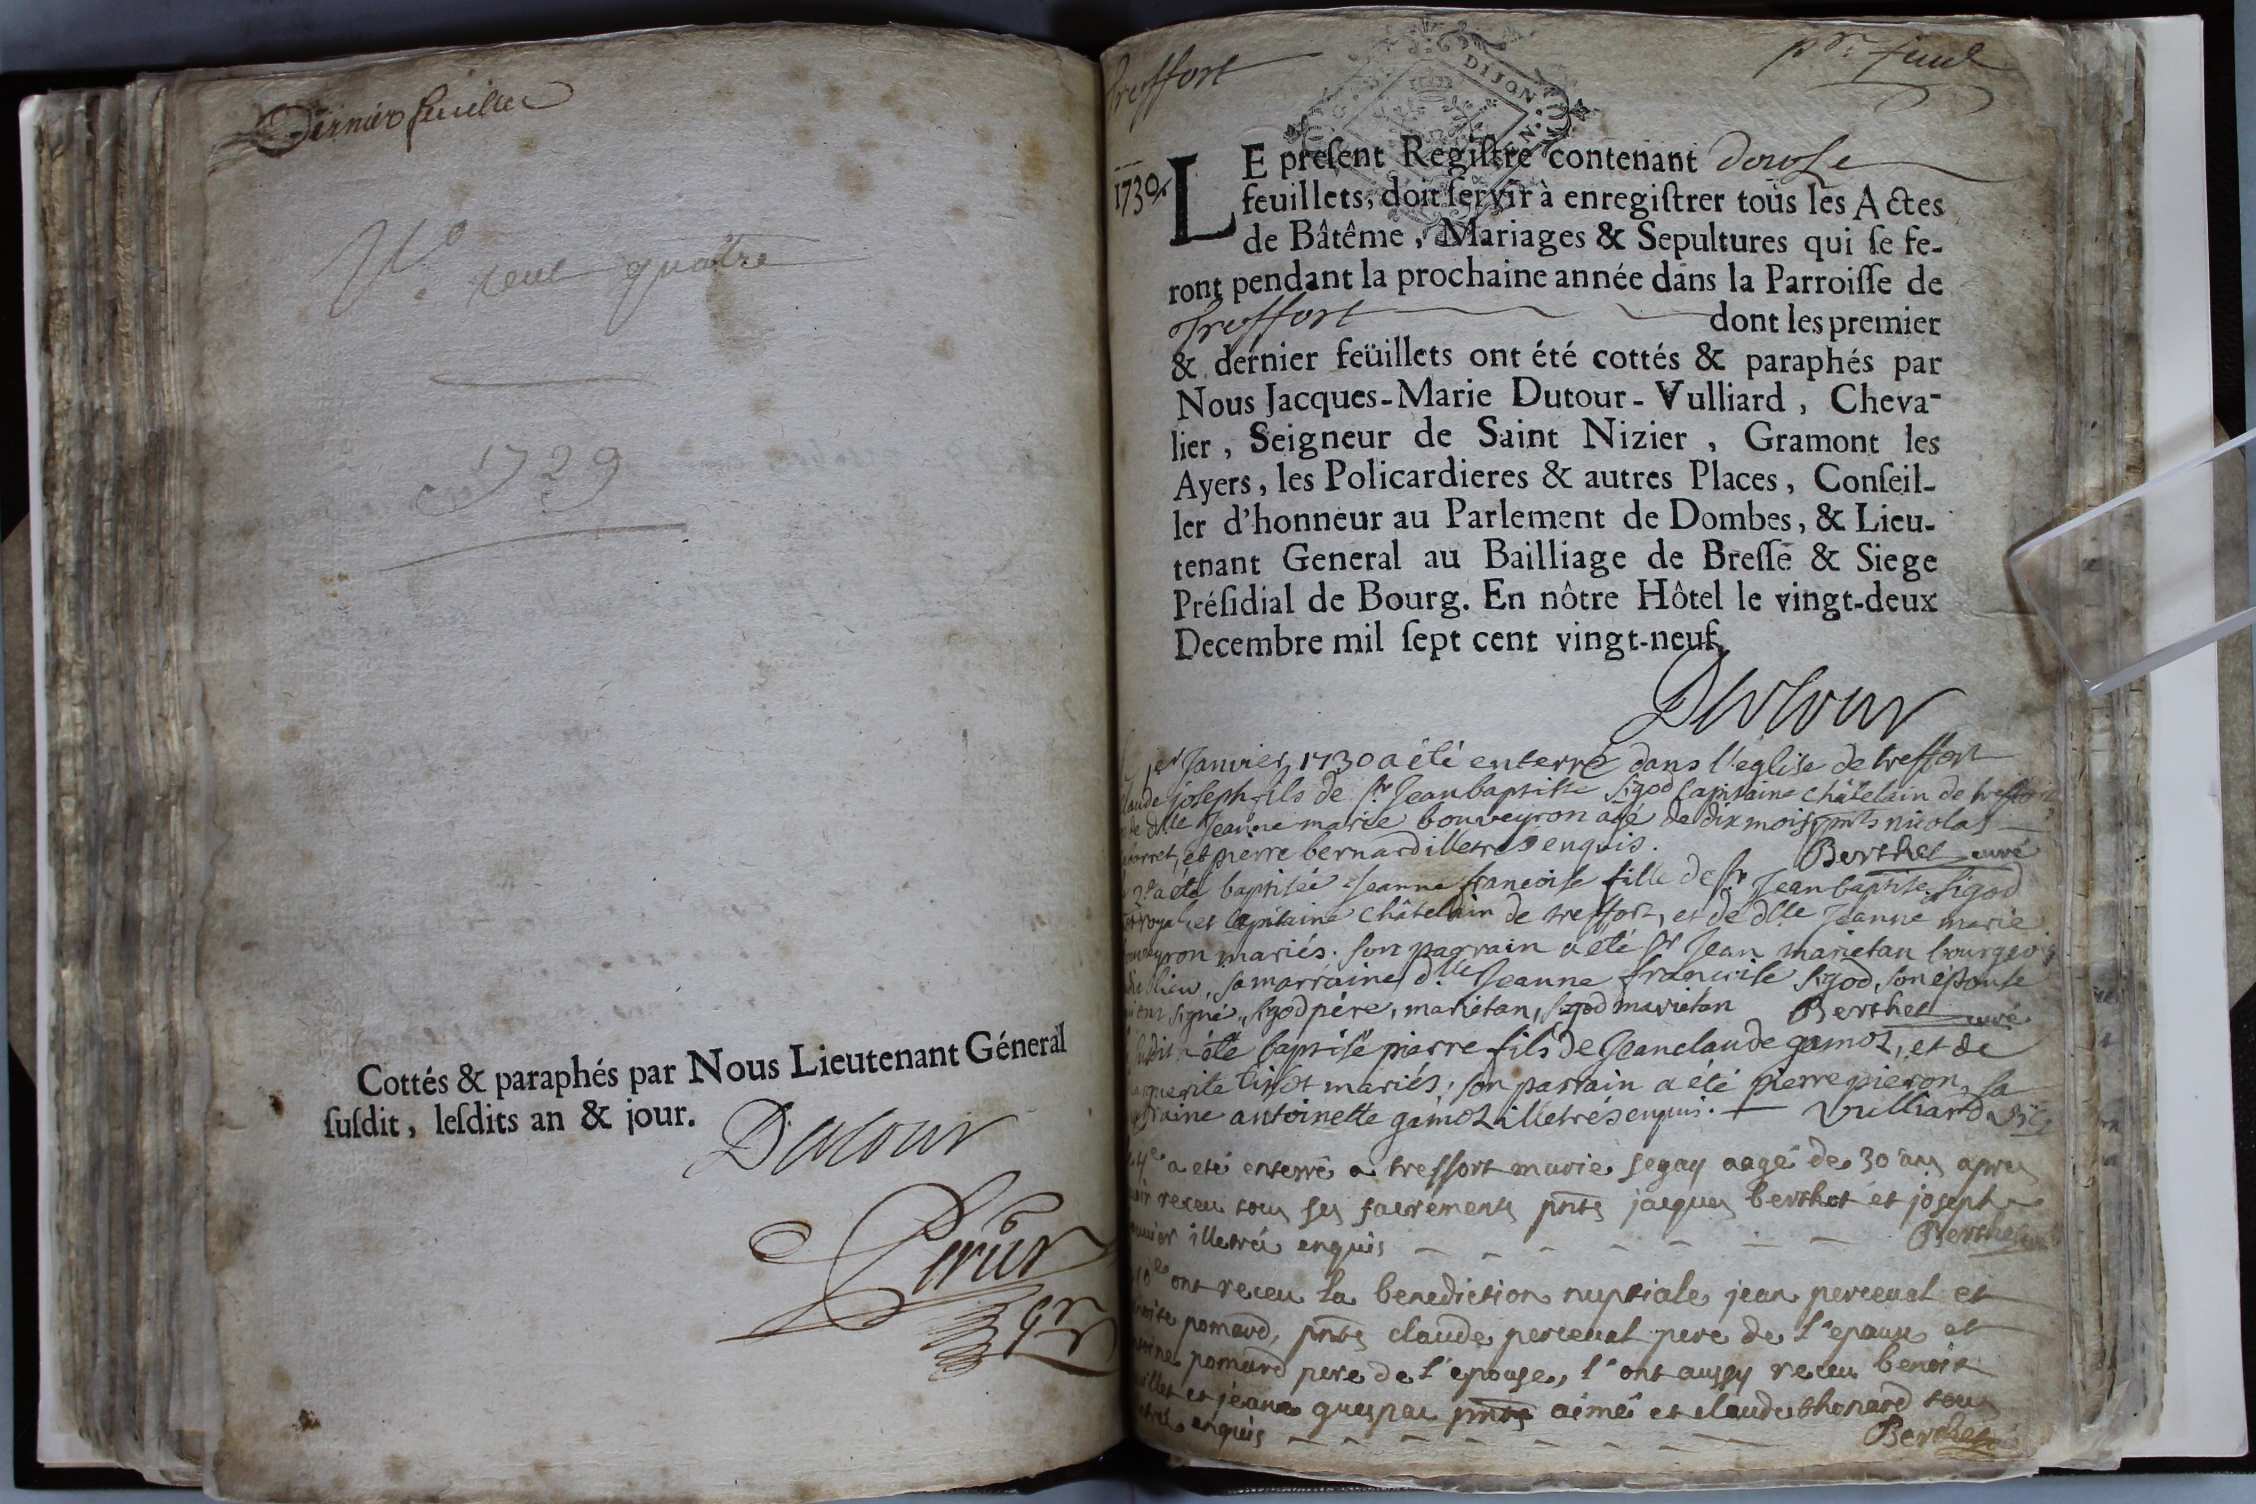 Dernier feuillet
N.o cent quatre
1729
Cottés & paraphés par Nous Lieutenant Géneral
ſuſdit, leſdits an & jour.
Dutour
Treffort
DIJON
1730.
LE preſent Regiſtre contenant douſe
feuillets, doit ſervir à enregiſtrer tous les Actes
de Bâtême, Mariages & Sepultures qui ſe fe-
ront pendant la prochaine année dans la Parroiſſe de
Treffort dont les premier
& dernier feüillets ont été cottés & paraphés par
Nous Jacques-Marie Dutour-Vulliard, Cheva-
lier, Seigneur de Saint Nizier, Gramont les
Ayers, les Policardieres & autres Places, Conſeil-
ler d'honneur au Parlement de Dombes, & Lieu-
tenant General au Bailliage de Breſſe & Siege
Préſidial de Bourg. En nôtre Hôtel le vingt-deux
Decembre mil ſept cent vingt-neuf.
Dutour
1er Janvier 1730 a été enterré dans l'eglise de treffort
claude joseph fils de Sr Jean baptiste Sigod Capitaine châtelain de treffort
de dlle Jeanne marie bouveyron agé de dix mois, pnts nicolas
et pierre bernard illetrés enquis. Berthet curé
3e a été baptisée Jeanne francoise fille de Sr Jean baptiste Sigod
royal et Capitaine châtelain de treffort, et de dlle Jeanne marie
bouveyron mariés. son parrain a été Sr Jean marietan bourgeois
dud lieu, sa marraine dlle Jeanne francoise Sigod, son épouse
qui ont signé, Sigod pére, marietan, Sigod marietan Berthet curé
susdit a été baptisé pierre fils de Jean claude gamoz, et de
marguerite tissot mariés, son parrain a été pierre pieron, sa
marraine antoinette gamoz illetrés enquis. Vulliard vic
4e a eté enterré a treffort marie segay aagé de 30 ans apres
avoir receu tous ses sacrements pnts jacques berthet et joseph
illetrés enquis Berthet
10e ont receu la benediction nuptiale jean perceval et
pomard, pnts claude perceval pere de l'epoux et
pomard pere de l'epouse, l'ont aussy receu benoit
et jeanne guespar pnts aimé et claude thonard tous
illetrés enquis Berthet